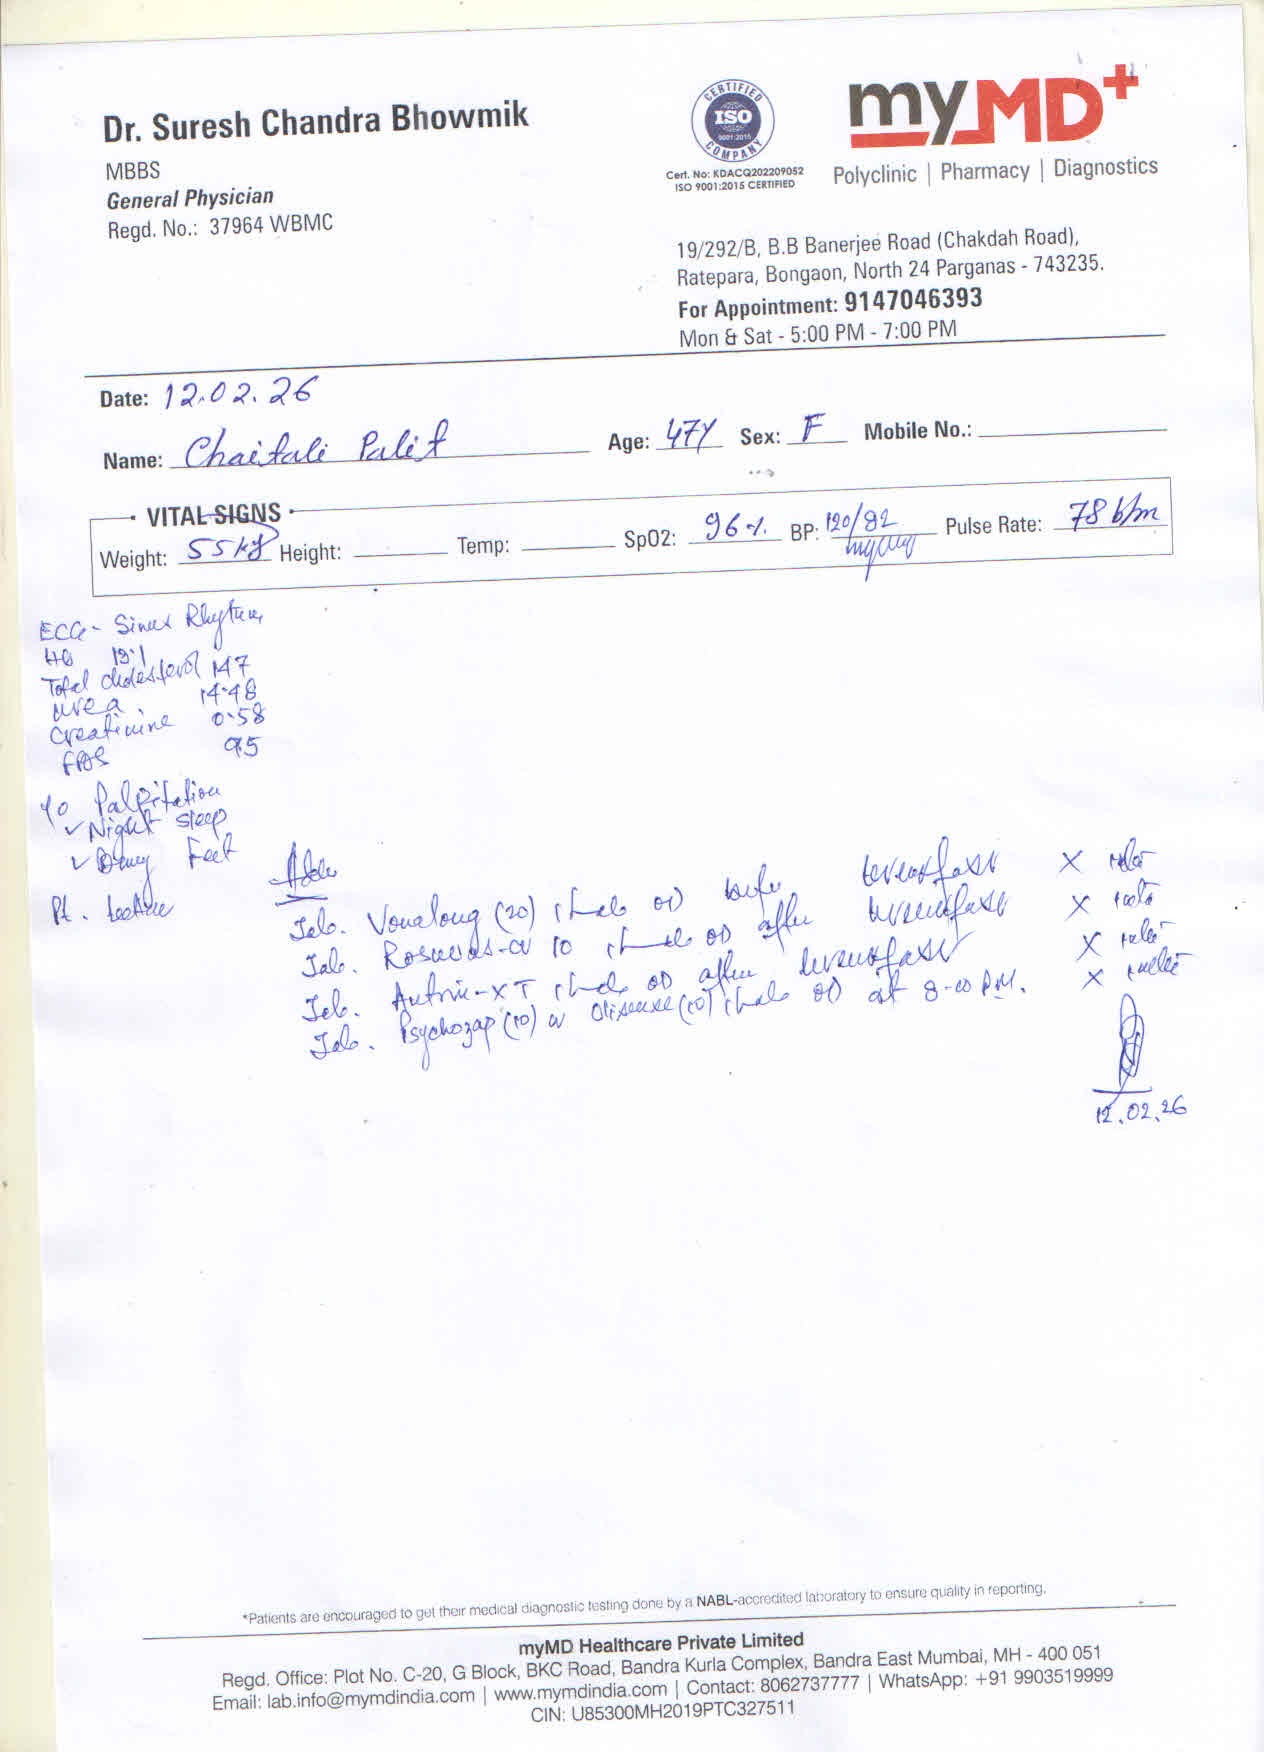 Dr. Suresh Chandra Bhowmik
MBBS
General Physician
Regd. No.: 37964 WBMC
CERTIFIED
ISO
9001:2015
COMPANY
Cert. No: KDACQ202209052
ISO 9001:2015 CERTIFIED
myMD+
Polyclinic | Pharmacy | Diagnostics
19/292/B, B.B Banerjee Road (Chakdah Road),
Ratepara, Bongaon, North 24 Parganas - 743235.
For Appointment: 9147046393
Mon & Sat - 5:00 PM - 7:00 PM
Date: 12.02.26
Name: Chaitali Palit Age: 47Y Sex: F Mobile No.:
VITAL SIGNS
Weight: 55kg Height: Temp: SpO2: 96% BP: 120/82 mmHg Pulse Rate: 78 b/m
ECG - Sinus Rhythm
Hb 13.1
Total cholesterol 147
urea 14.48
Creatinine 0.58
FBS 95
Palpitation
✓ Night sleep
✓ Feet
Pt.
Tab. (20) OD before breakfast X
Tab. Rosuvas-CV 10 OD after breakfast X
Tab. OD after breakfast X
Tab. (10) (10) OD at 8-00 P.M. X
12.02.26
*Patients are encouraged to get their medical diagnostic testing done by a NABL-accredited laboratory to ensure quality in reporting.
myMD Healthcare Private Limited
Regd. Office: Plot No. C-20, G Block, BKC Road, Bandra Kurla Complex, Bandra East Mumbai, MH - 400 051
Email: lab.info@mymdindia.com | www.mymdindia.com | Contact: 8062737777 | WhatsApp: +91 9903519999
CIN: U85300MH2019PTC327511